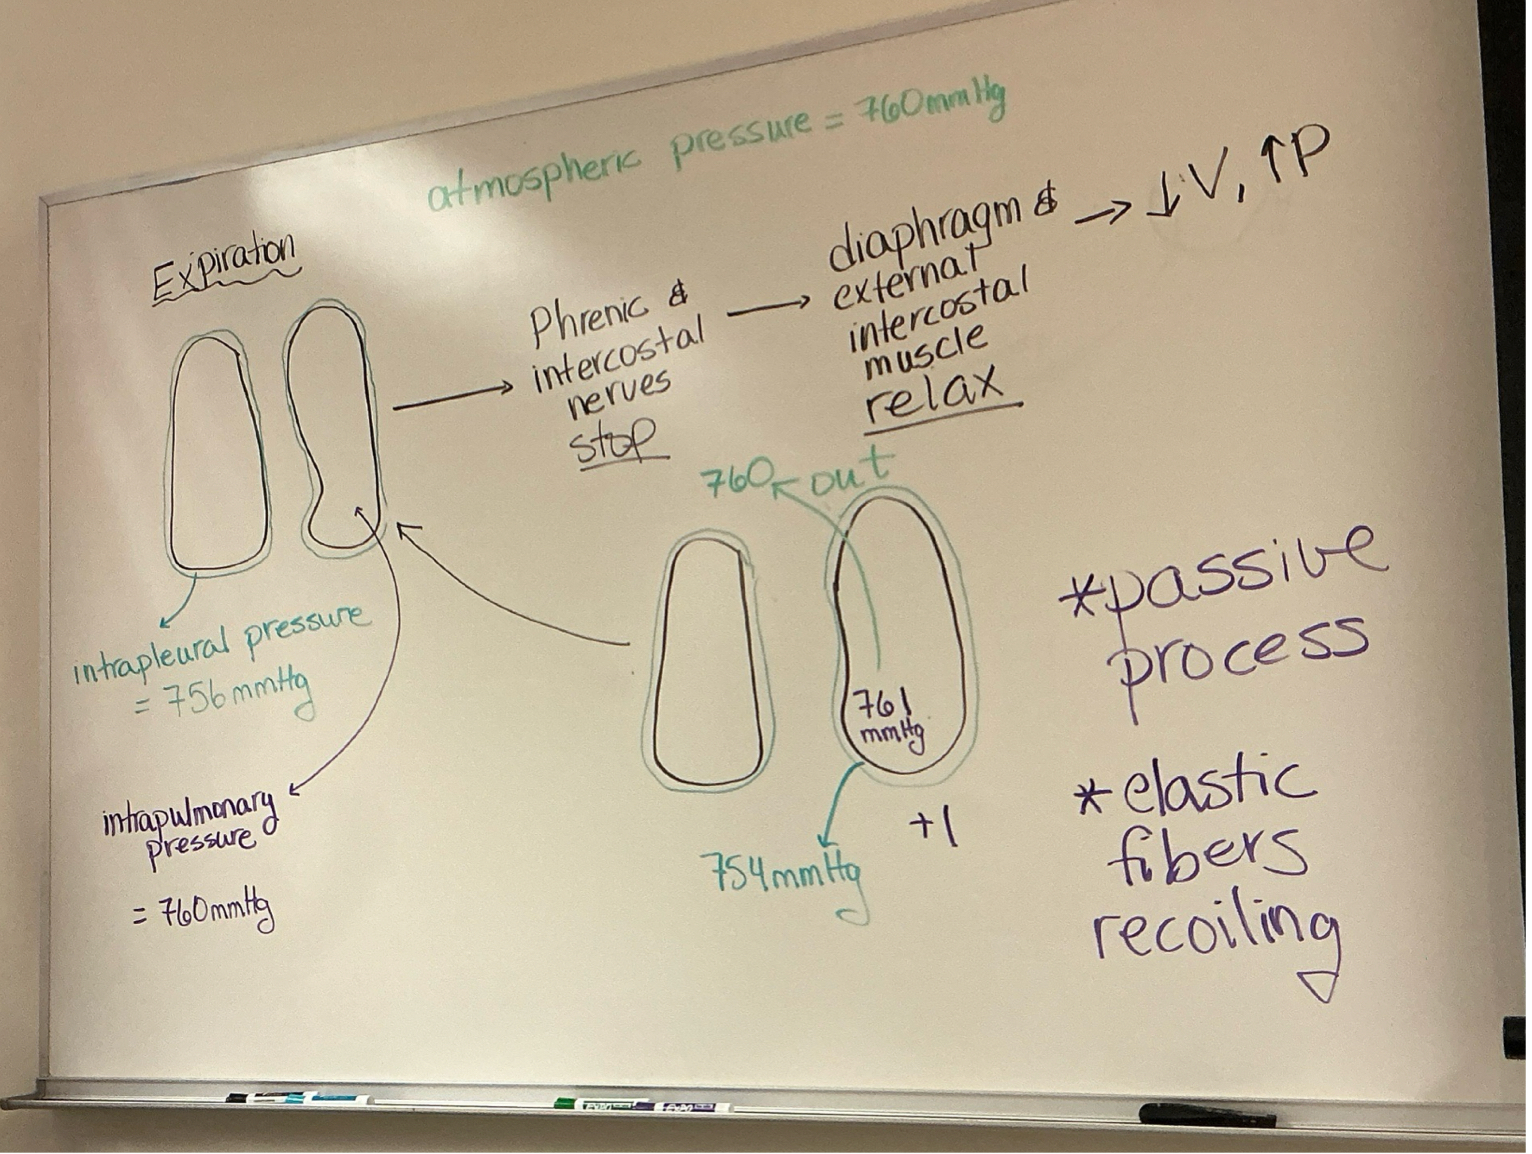 atmospheric pressure = 760mmHg
Expiration
Phrenic &
intercostal
nerves
stop
diaphragm &
external
intercostal
muscle
relax
↓V, ↑P
intrapleural pressure
= 756mmHg
intrapulmonary
pressure
= 760mmHg
760 out
761
mmHg
+1
754mmHg
*passive
process
*elastic
fibers
recoiling
EXPO
EXPO